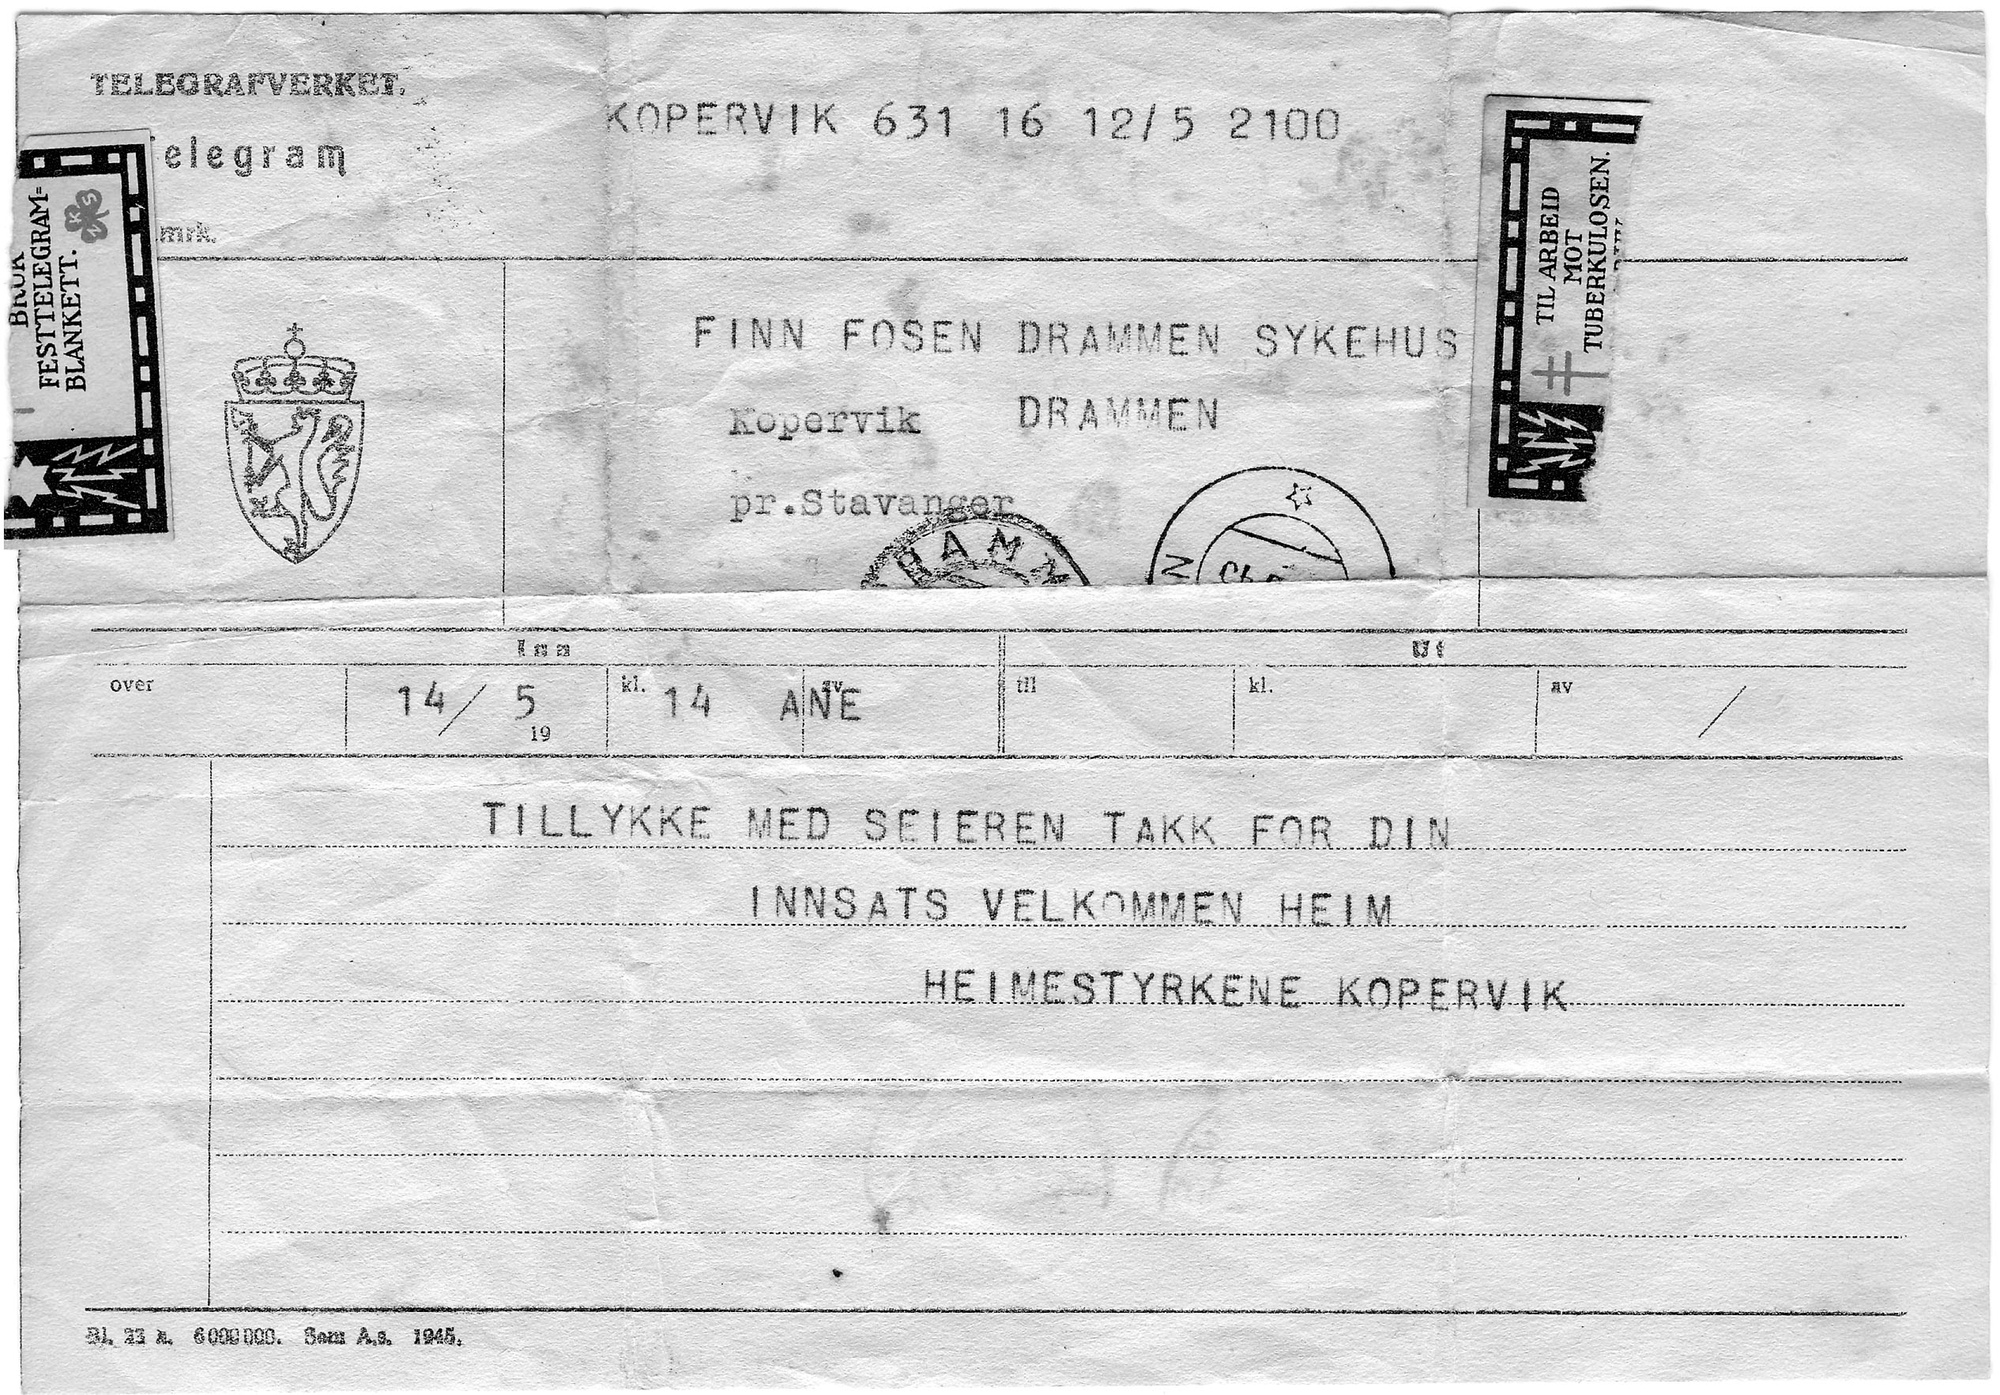 TELEGRAFVERKET.
KOPERVIK 631 16 12/5 2100
elegram
mrk.
BRUK
FESTTELEGRAM=
BLANKETT.
N K S
TIL ARBEID
MOT
TUBERKULOSEN.
FINN FOSEN DRAMMEN SYKEHUS
Kopervik DRAMMEN
pr.Stavanger
RAMM
N
Inn Ut
over 14/ 5 19 kl. 14 av ANE til kl. av /
TILLYKKE MED SEIEREN TAKK FOR DIN
INNSATS VELKOMMEN HEIM
HEIMESTYRKENE KOPERVIK
Bl. 22 a. 6000000. Sem A.s. 1945.